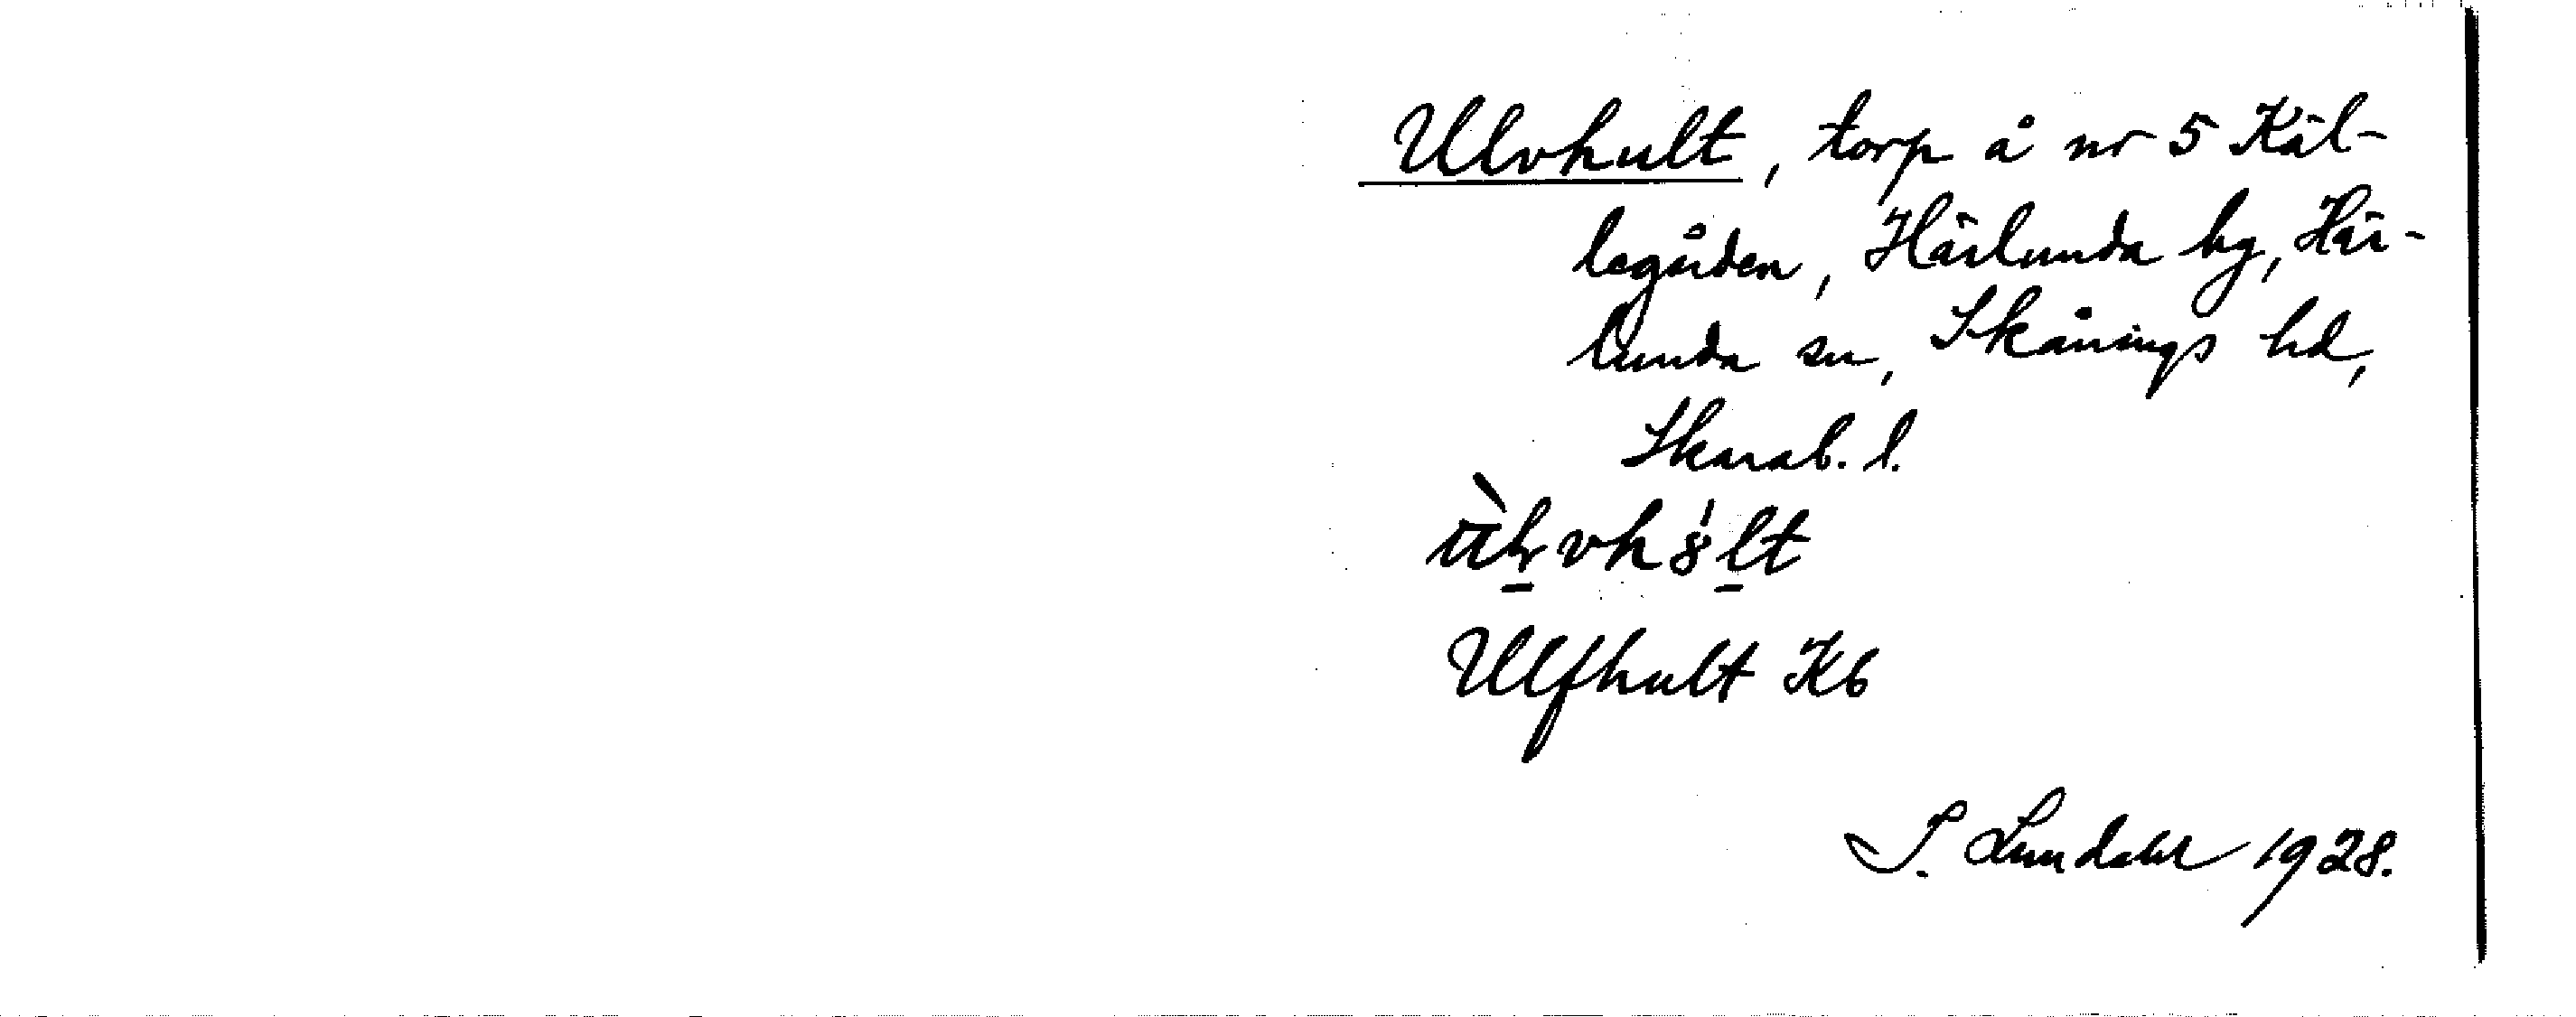 Ulvhult, torp å nr 5 Käl-
legården, Härlunda by, Här-
lunda sn, Skånings hd,
Skarab. l.
Ulfhult Kb
S. Lundahl 1928.